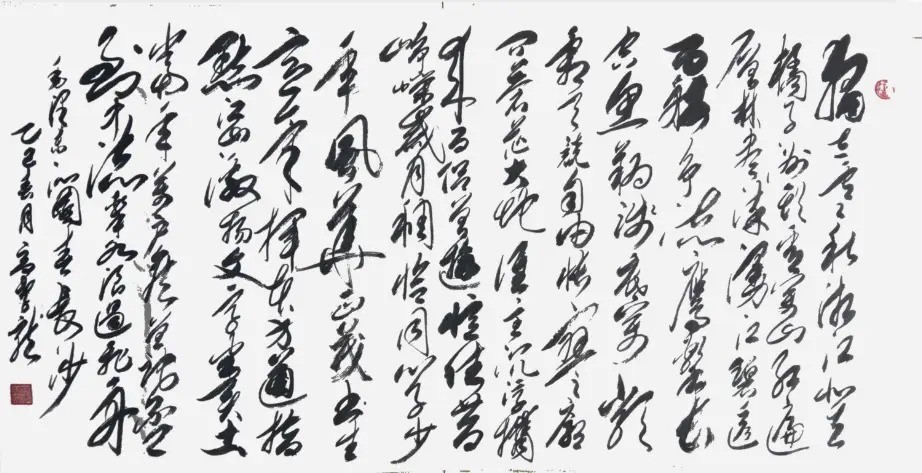 独立寒秋湘江北去
橘子洲头看万山红遍
层林尽染漫江碧透
百舸争流鹰击长
空鱼翔浅底万类
霜天竞自由怅寥廓
问苍茫大地谁主沉浮携
来百侣曾游忆往昔
峥嵘岁月稠恰同学少
年风华正茂书生
意气挥斥方遒指
点江山激扬文字粪土
当年万户侯曾记否
到中流击水浪遏飞舟
毛泽东沁园春长沙
乙巳春月